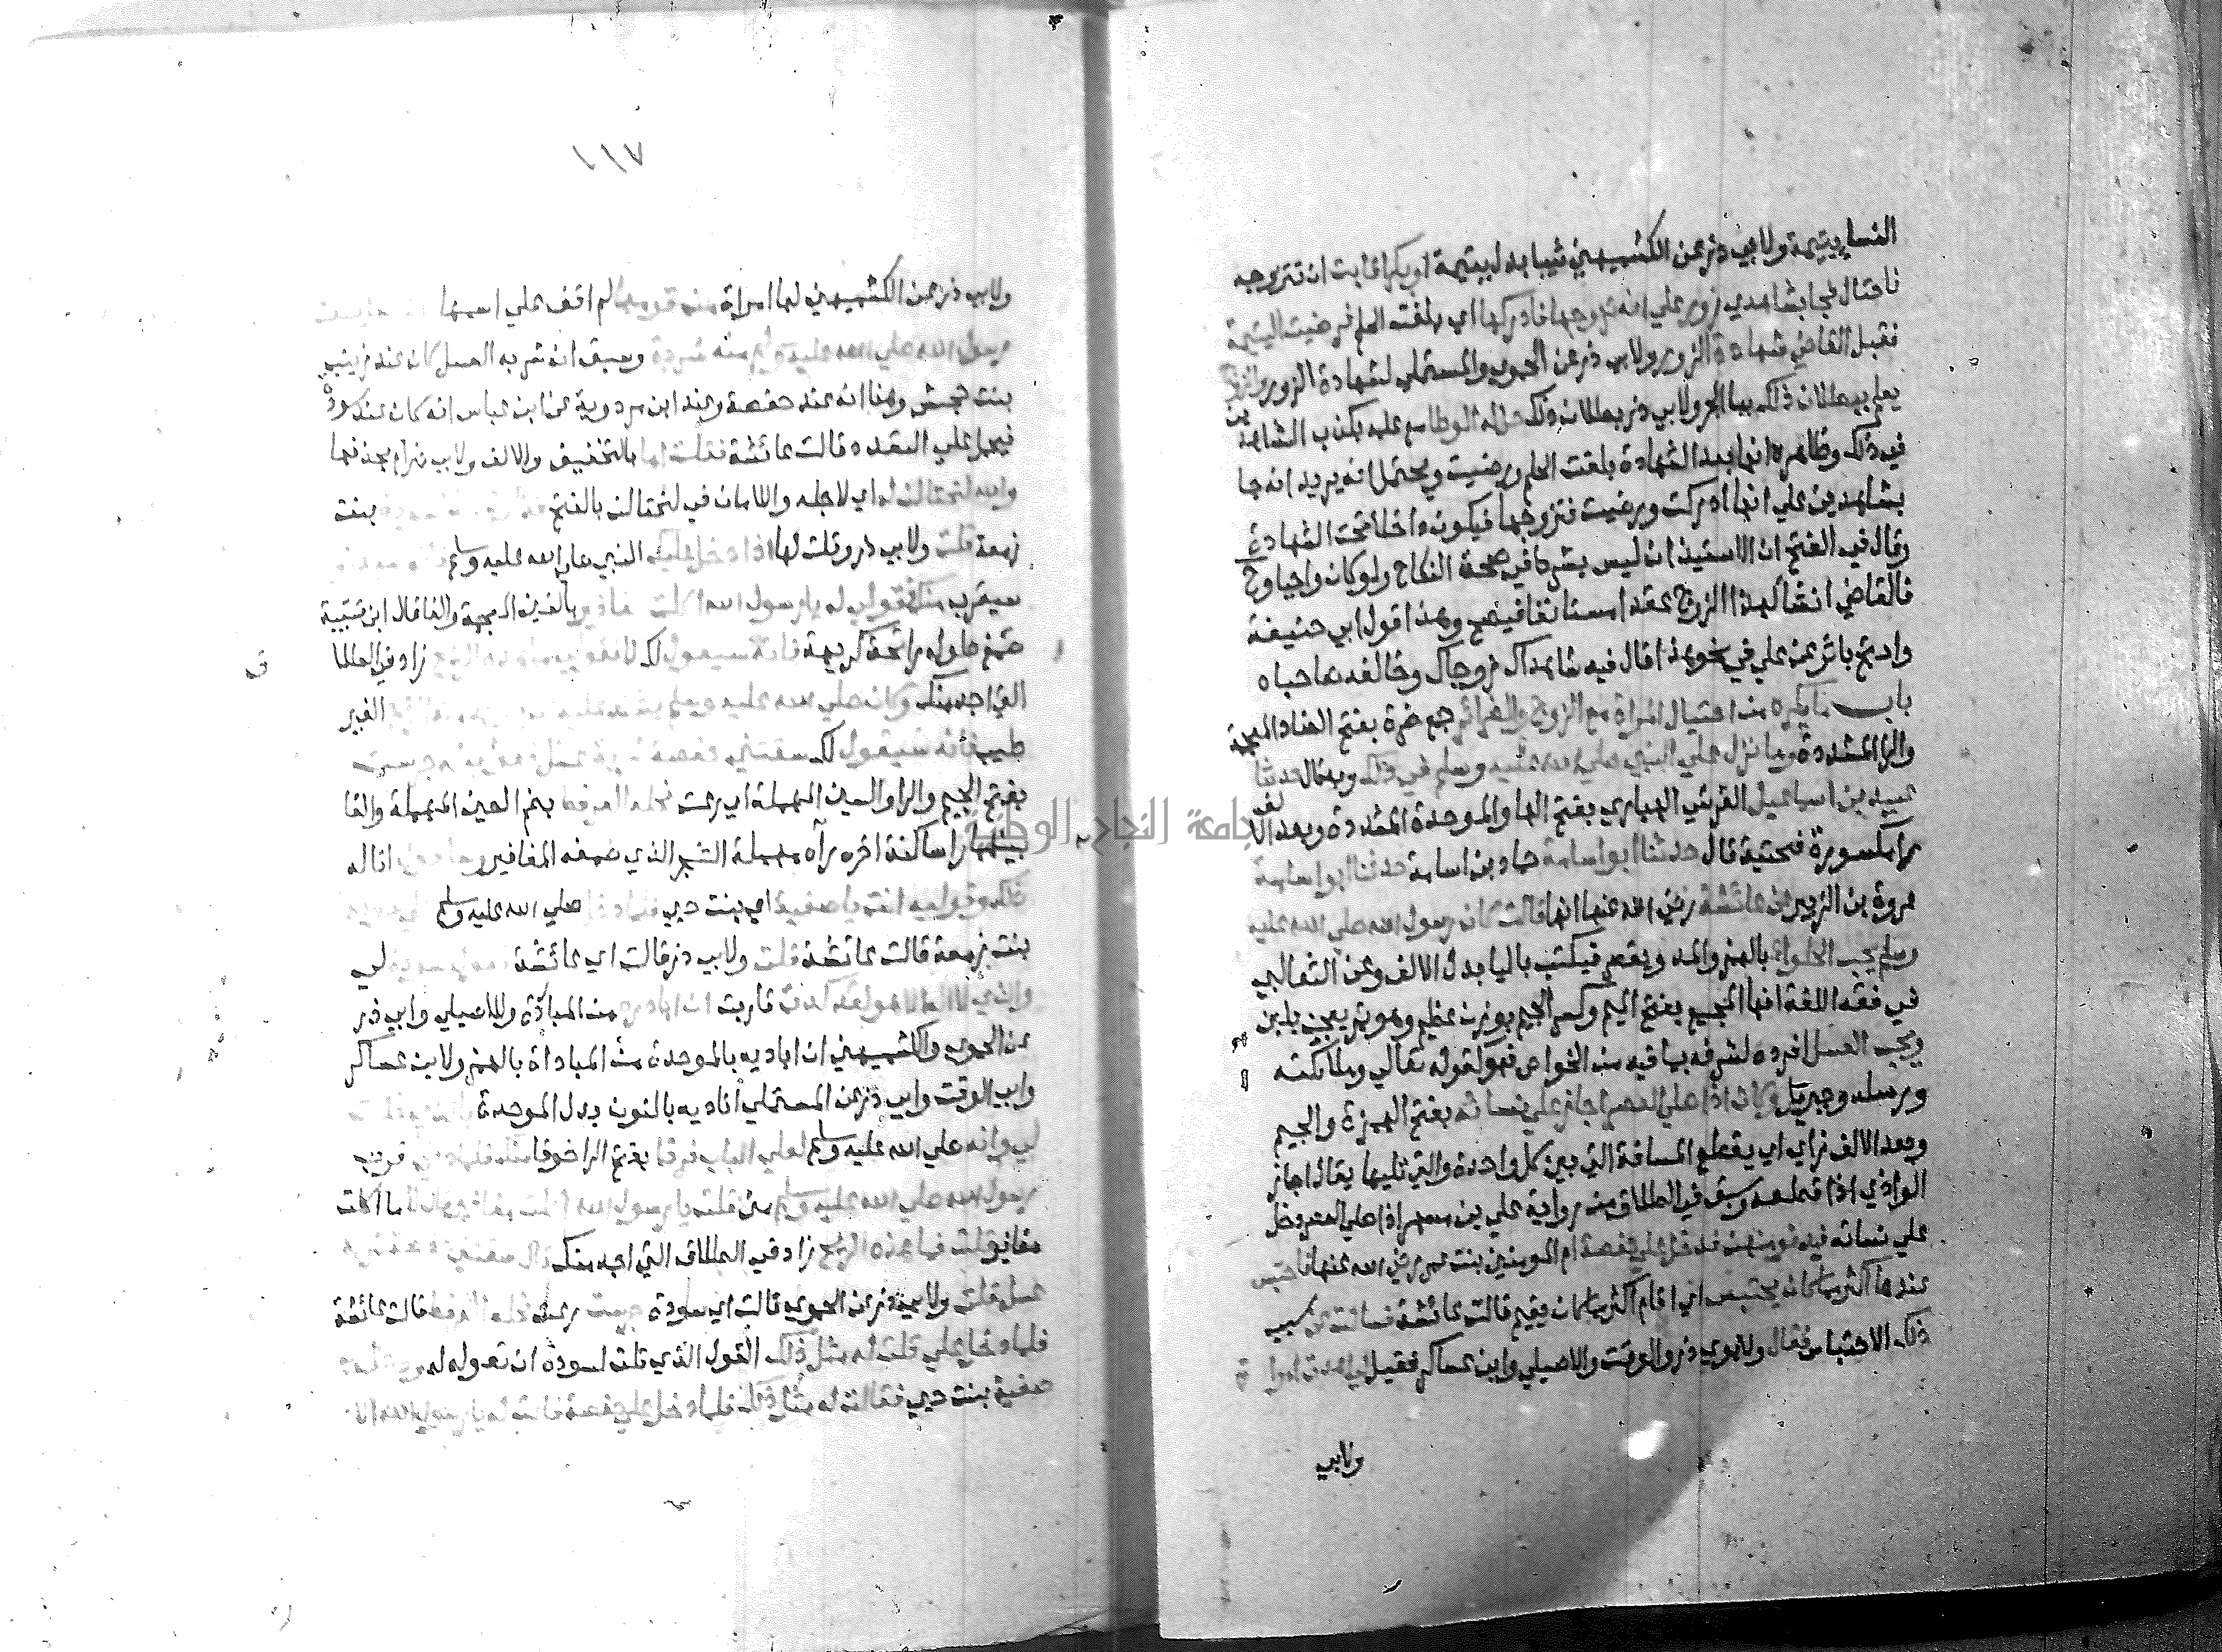 النسا يتيمة ولابي ذر عن الكشميهني ثيبا بدل يتيمة او بكرا فابت ان تتزوجه
فاحتال فجا بشاهدي زور علي انه تزوجها فادركت اي بلغت الحلم فرضيت اليتيمة
فقبل القاضي شهادة الزور ولابي ذر عن الحموي والمستملي لشهادة الزور والزوج
يعلم ببطلان ذلك ولابي ذر بطلان ذلك حل له الوطا مع علمه بكذب الشاهدين
في ذلك وظاهره انها بعد الشهادة بلغت الحلم ورضيت ويحتمل انه يريد انه جا
بشاهدين علي انها ادركت ورضيت فتزوجها فيكون داخلا تحت الشهادة
وقال في الفتح ان الاستيذان ليس بشرط في صحة النكاح ولو كان واجبا وح
فالقاضي انشا لهذا الزوج عقدا مستانفا فيصح وهذا قول ابي حنيفة
واحتج باثر عن علي في نحو هذا قال فيه شاهداك زوجاك وخالفه صاحباه
باب ما يكره من احتيال المراة مع الزوج والضرائر جمع ضرة بفتح الضاد المعجمة
والرا المشددة وما نزل علي النبي صلي الله عليه وسلم في ذلك وبه قال حدثنا
عبيد بن اسماعيل القرشي الهباري بفتح الها والموحدة المشددة وبعد الالف
را مكسورة فتحتية قال حدثنا ابو اسامة حماد بن اسامة
عروة بن الزبير عن عائشة رضي الله عنها انها قالت كان رسول الله صلي الله عليه
وسلم يحب الحلواء بالهمز والمد ويقصر فيكتب باليا بدل الالف وعن الثعالبي
في فقه اللغة انها المجيع بفتح الميم وكسر الجيم بوزن عظيم وهو تمر يعجن بلبن
ويحب العسل افرده لشرفه بما فيه من الخواص فهو كقوله تعالي وملائكته
ورسله وجبريل وكان اذا صلي العصر اجاز علي نسائه بفتح الهمزة والجيم
وبعد الالف زاي اي يقطع المسافة التي بين كل واحدة والتي تليها يقال اجاز
الوادي اذا قطعه وسبق في الطلاق من رواية علي بن مسهر اذا صلي العصر دخل
علي نسائه فيدنو منهن فدخل علي حفصة ام المومنين بنت عمر رضي الله عنها فاحتبس
عندها اكثر مما كان يحتبس اي اقام اكثر مما كان يقيم قالت عائشة فسالت عن سبب
ذلك الاحتباس فقال ولابوي ذر والوقت والاصيلي وابن عساكر فقيل لي اهدت امراة
ولابي
١١٧
ولابي ذر عن الكشميهني لها امراة من قومها لم اقف علي اسمها
رسول الله صلي الله عليه وسلم منه شربة وسبق ان شربه العسل كان عند زينب
بنت جحش وهنا انه عند حفصة وعند ابن مردوية عن ابن عباس انه كان عند سودة
فيحمل علي التعدد قالت عائشة فقلت اما بالتخفيف والالف ولابي ذر ام بحذفها
والله لنحتالن له اي لاجله واللامان في لنحتالن بالفتح بنت
زمعة قلت ولابي ذر وقلت لها اذا دخل عليك النبي صلي الله عليه وسلم
سيقرب منك فقولي له يا رسول الله اكلت مغافير بالغين المعجمة والفا قال ابن قتيبة
صمغ حلو له رائحة كريهة فانه سيقول لك لا فقولي له ما هذه الريح زاد في الطلاق
التي اجد منك وكان صلي الله عليه وسلم الغير
طيب فانه سيقول لك سقتني حفصة شربة عسل فقولي له جرست
بفتح الجيم والرا والسين المهملة اي رعت نحله العرفط بضم العين المهملة والفا
بينهما را ساكنة اخره طا مهملة الشجر الذي صمغه المغافير
ذلك وقوليه انت يا صفية اي بنت حيي فلما دخل صلي الله عليه وسلم
بنت زمعة قالت عائشة قلت ولابي ذر قالت اي عائشة
والذي لا اله الا هو لقد كدت قاربت ان ابادره من المبادرة وللاصيلي وابي ذر
عن الحموي والكشميهني ان اباديه بالموحدة من المباداة بالهمز ولابن عساكر
وابي الوقت وابي ذر عن المستملي اناديه بالنون بدل الموحدة
لي وانه صلي الله عليه وسلم لعلي الباب فرقا بفتح الرا خوفا منك فلما دنا قرب
رسول الله صلي الله عليه وسلم مني قلت يا رسول الله اكلت مغافير قال لا ما اكلت
مغافير قلت فما هذه الريح زاد في الطلاق التي اجد منك قال سقتني حفصة شربة
عسل قلت ولابي ذر عن الحموي قالت اي سودة جرست رعت نحله العرفط قالت عائشة
فلما دخل علي قلت له مثل ذلك القول الذي قلت لسودة ان تقوله له
صفية بنت حيي فقالت له مثل ذلك فلما دخل علي حفصة قالت له يا رسول الله الا
جامعة النجاح الوطنية